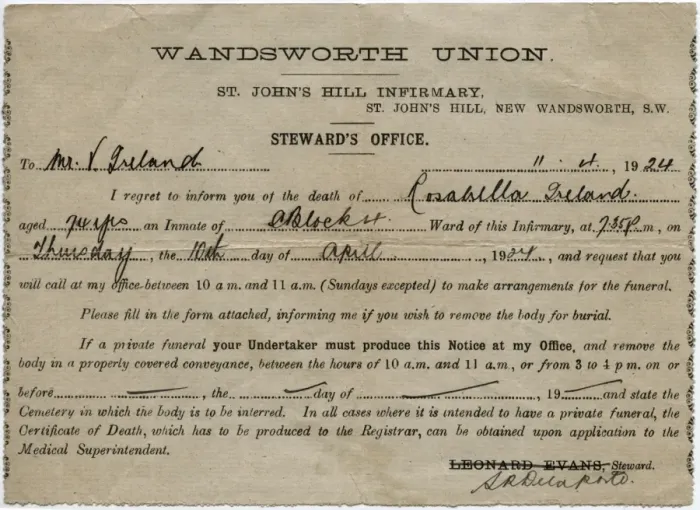 WANDSWORTH UNION.
ST. JOHN'S HILL INFIRMARY,
ST. JOHN'S HILL, NEW WANDSWORTH, S.W.
STEWARD'S OFFICE.
To Mr. V. Ireland 11 . 4 , 1924
I regret to inform you of the death of Rosabella Ireland.
aged 74 yrs an Inmate of Block Ward of this Infirmary, at 7.35 P m, on
Thursday, the 10th day of April, 1924, and request that you
will call at my office between 10 a.m. and 11 a.m. (Sundays excepted) to make arrangements for the funeral.
Please fill in the form attached, informing me if you wish to remove the body for burial.
If a private funeral your Undertaker must produce this Notice at my Office, and remove the
body in a properly covered conveyance, between the hours of 10 a.m. and 11 a.m., or from 3 to 4 p.m. on or
before, the day of, 19 and state the
Cemetery in which the body is to be interred. In all cases where it is intended to have a private funeral, the
Certificate of Death, which has to be produced to the Registrar, can be obtained upon application to the
Medical Superintendent.
LEONARD EVANS, Steward.